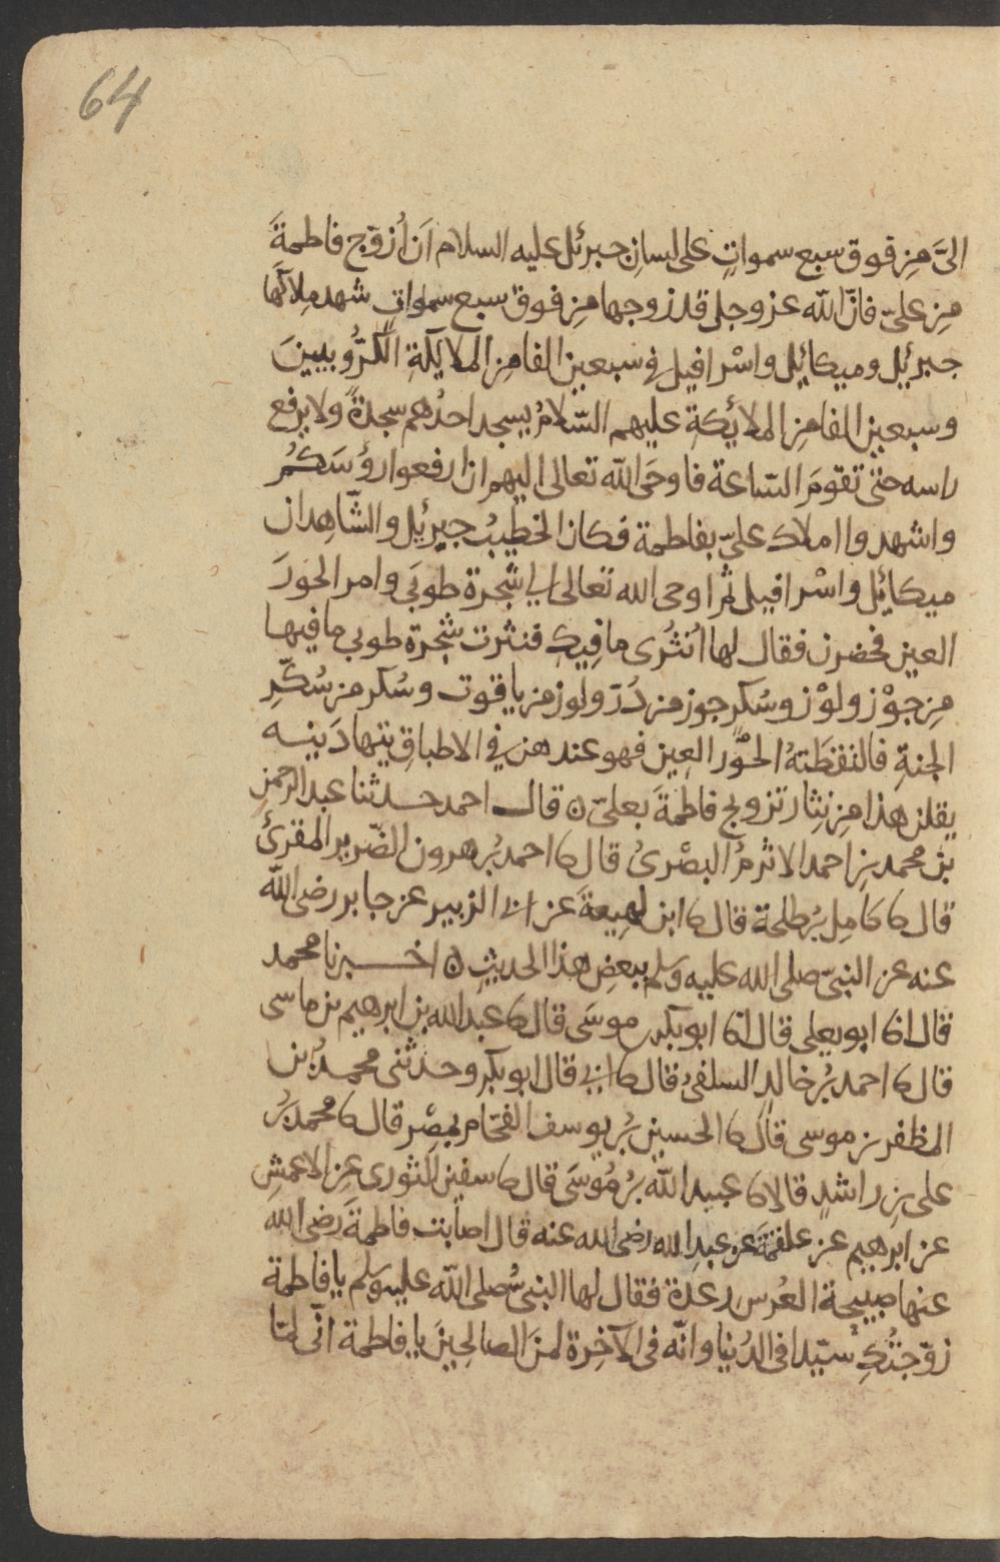 64
الىّ مِن فوق سبع سمواتٍ على لسانِ جبرئل عليه السلام اَن اُزوّج فاطمةَ
مِن علىّ فانّ الله عز وجل قد زوجها مِن فوق سبع سمواتٍ شهد مِلاكَها
جبرئيل وميكائيل واسْرافيل فى سبعين الفا مِن الملايكةِ الكَرُّوبيينَ
وسبعين الفا مِن الملائكةِ عليهم السّلامُ يسجد احدُهم سجدةً ولا يرفع
راسه حتى تقومَ السّاعة فاوحَى الله تعالى اليهم ان ارفعوا رؤسَكُمُ
واشهدوا املاك علىّ بفاطمة فكان الخطيبُ جبرئيل والشّاهِدان
ميكائيل واسْرافيل ثم اوحى الله تعالى الى شجرة طوبَى وامر الحورَ
العين فحضرن فقال لها اُنثُرى ما فِيكِ فنثرت شجرة طوبى ما فيها
مِن جوْز ولوْز وسُكر جوز من دُرّ ولوز من ياقوت وسُكر من سُكّرِ
الجنةِ فالتقطَتهُ الحُوْر العِين فهو عندهن فى الاطباقِ يتهادَينه
يقلن هذا مِن نِثار تزويج فاطمةَ بعلىّ ن قال احمد حدثنا عبد الرحمنِ
بن محمد بنِ احمد الاثرمُ البصْرىُ قال ثنا احمد بُر هرون الضّرير المقرئُ
قال ثنا كامِل بُر طلحة قال ثنا ابن لهِيعةَ عن ابى الزبير عن جابر رضى الله
عنه عن النبىّ صلى الله عليه وسلم ببعضِ هذا الحديثِ ن اخبرنا محمد
قال انا ابو يعلى قال انا ابو بكر موسَى قال ثنا عبد الله بن ابرهيم بن ماسى
قال ثنا احمد بُر خالدٍ السلفىُ قال ثنا ابى قال ابو بكر وحدثنى محمدُ ابن
المظفر بن موسى قال ثنا الحسين بُر يوسف الفحّام بمصْر قال ثنا محمد بُر
على بنِ راشدٍ قالا ثنا عبيد الله بُر مُوسَى قال ثنا سفين الثورى عن الاعمشِ
عن ابرهيم عن علقمةَ عن عبدِ الله رضى الله عنه قال اصابت فاطمةَ رضى الله
عنها صبيحة العُرس رعدة فقال لها النبىُ صلى الله عليه وسلم يا فاطمة
زوّجتُكِ سيّدا فى الدُنيا وانّه فى الآخِرة لمنَ الصالحِينَ يا فاطمة انّى لمّا